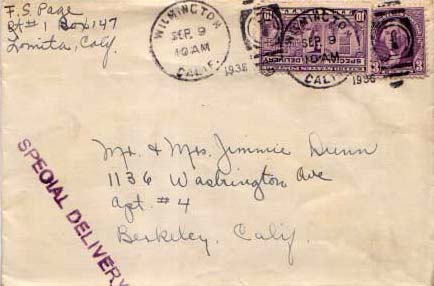 F.S Page
Rt # 1 Box 147
Lomita, Calif.
WILMINGTON
SEP. 9
10 AM
CALIF.
1936
WILMINGTON
SEP. 9
10 AM
CALIF.
1936
10
SPECIAL DELIVERY
10
3
3
SPECIAL DELIVERY
Mr. & Mrs. Jimmie Dunn
1136 Washington Ave
Apt. #4
Berkeley, Calif.